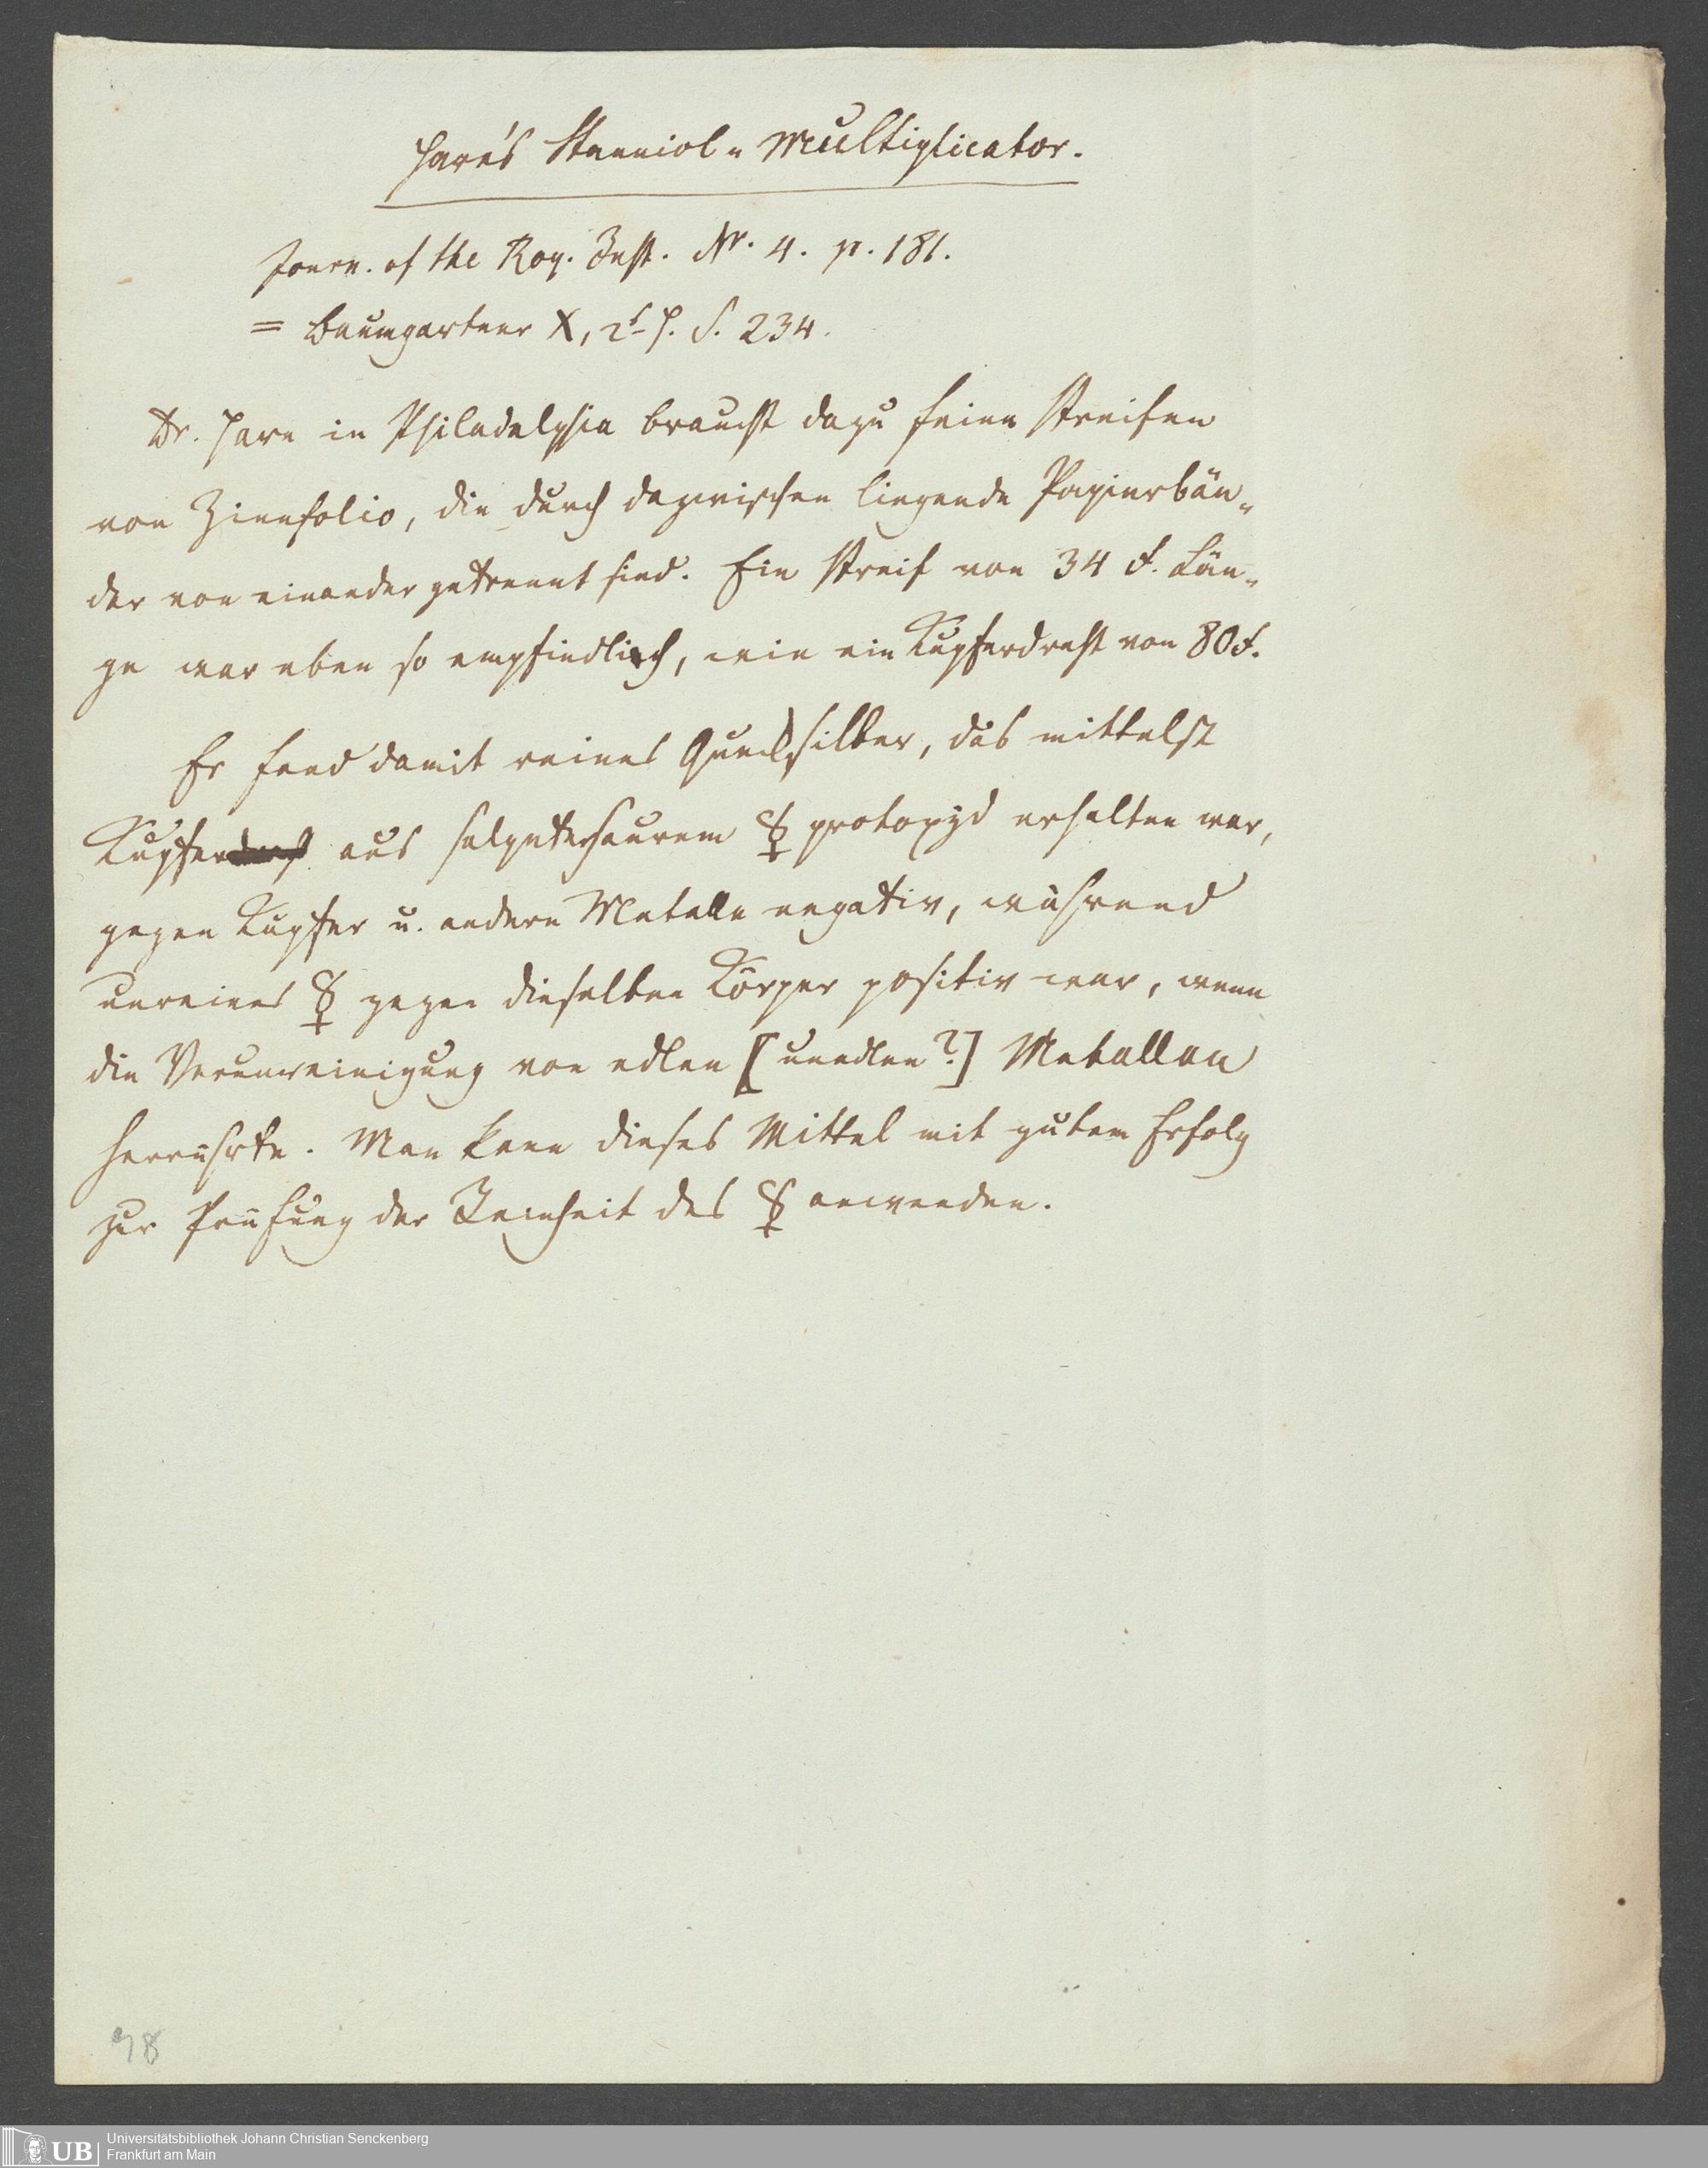 Hare's Stanniol-Multiplicator.
Journ. of the Roy. Inst. Nr. 4. p. 181.
= Baumgartner X, 2s H. S. 234.
Dr. Hare in Philadelphia braucht dazu feine Streifen
von Zinnfolio, die durch dazwischen liegende Papierbän-
der von einander getrennt sind. Ein Streif von 34 F. Län-
ge war eben so empfindlich, wie ein Kupferdraht von 80 F.
Er fand damit reines Quecksilber, das mittelst
Kupfer aus salpetersaurem ☿ protoxyd erhalten war,
gegen Kupfer u. andere Metalle negativ, während
unreines ☿ gegen dieselben Körper positiv war, wenn
die Verunreinigung von edlen [unedlen?] Metallen
herrührte. Man kann dieses Mittel mit gutem Erfolg
zur Prüfung der Reinheit des ☿ anwenden.
98
UB
Universitätsbibliothek Johann Christian Senckenberg
Frankfurt am Main